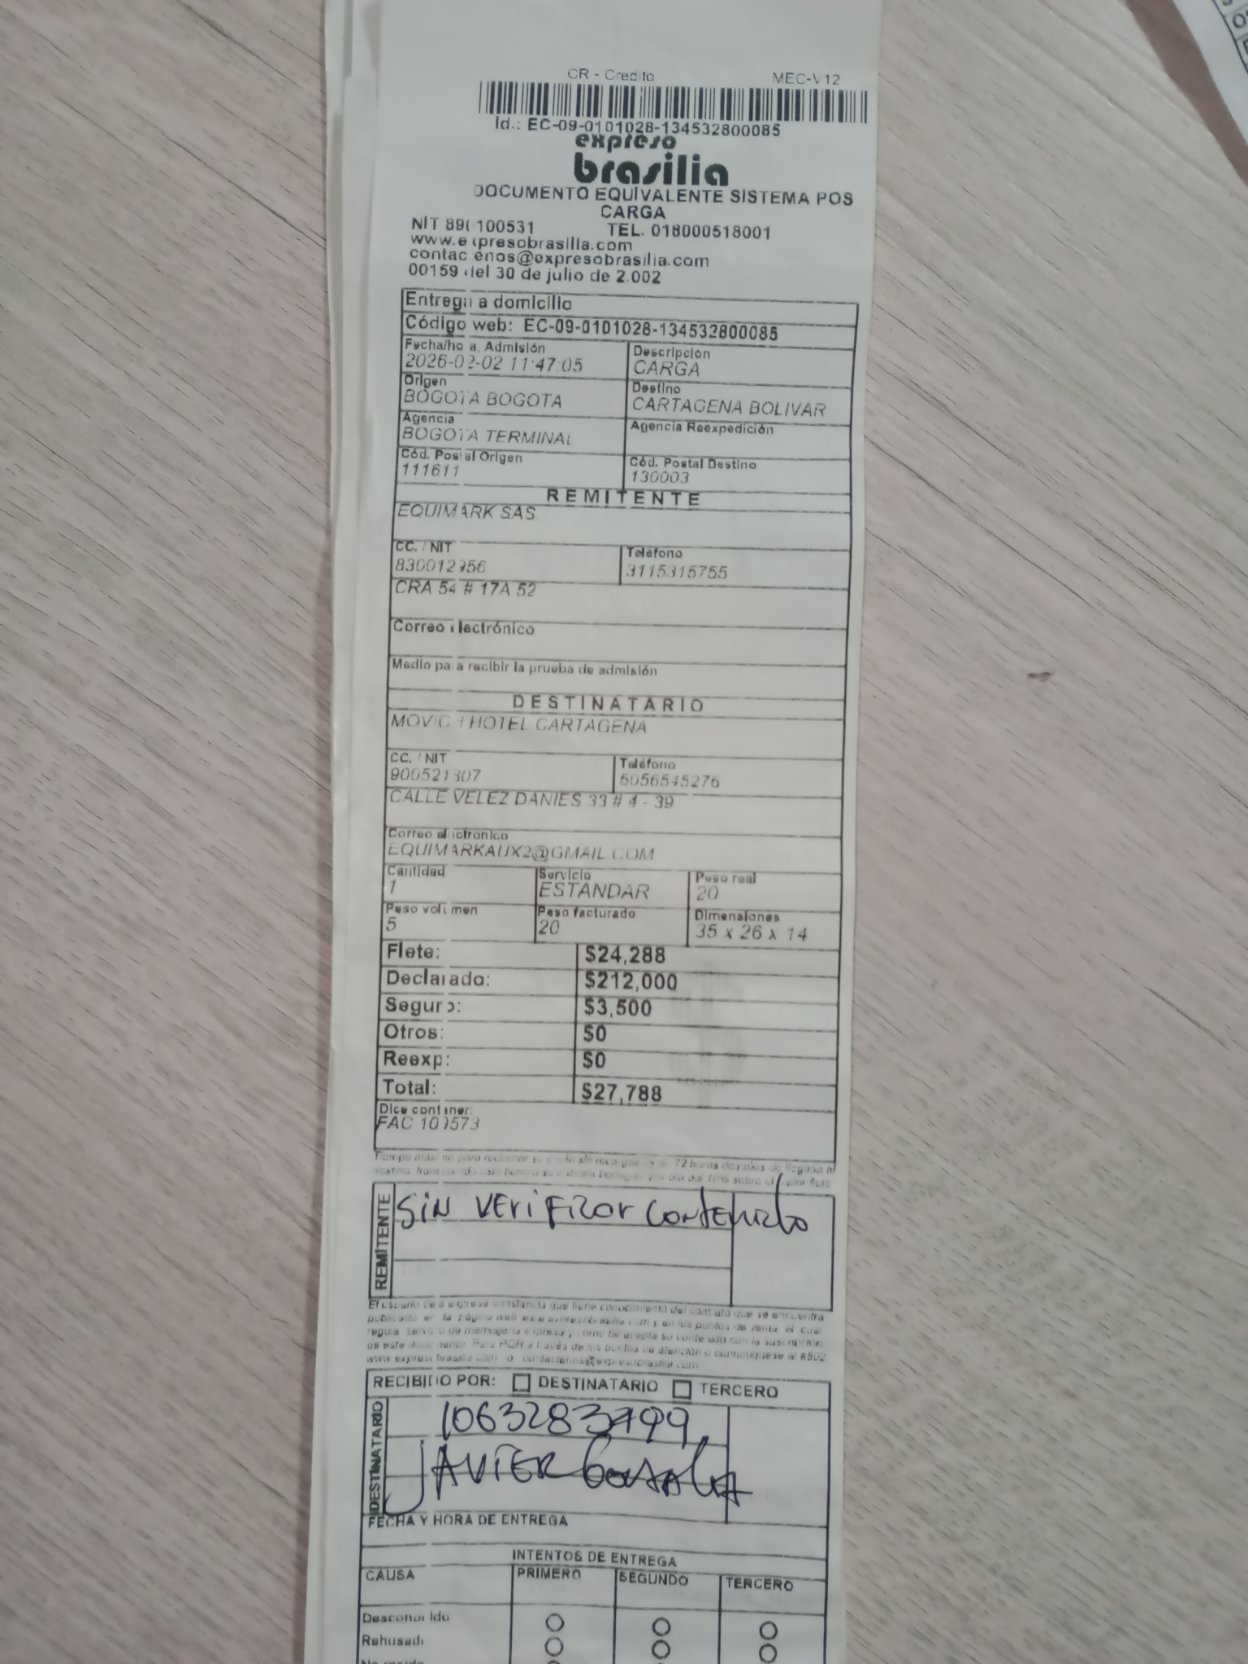 CR - Credito MEC-V12
Id.: EC-09-0101028-134532800085
expreso
brasilia
DOCUMENTO EQUIVALENTE SISTEMA POS
CARGA
NIT 890100531 TEL. 018000518001
www.expresobrasilia.com
contactenos@expresobrasilia.com
00159 del 30 de julio de 2.002
Entrega a domicilio
Código web: EC-09-0101028-134532800085
Fecha/hora Admisión Descripción
2026-02-02 11:47:05 CARGA
Origen Destino
BOGOTA BOGOTA CARTAGENA BOLIVAR
Agencia Agencia Reexpedición
BOGOTA TERMINAL
Cód. Postal Origen Cód. Postal Destino
111611 130003
REMITENTE
EQUIMARK SAS
CC. / NIT Teléfono
830012956 3115315755
CRA 54 # 17A 52
Correo electrónico
Medio para recibir la prueba de admisión
DESTINATARIO
MOVICH HOTEL CARTAGENA
CC. / NIT Teléfono
6056545276
CALLE VELEZ DANIES 33 # 4 - 39
Correo electronico
EQUIMARKAUX2@GMAIL.COM
Cantidad Servicio Peso real
1 ESTANDAR 20
Peso volumen Peso facturado Dimensiones
5 20 35 x 26 x 14
Flete: $24,288
Declarado: $212,000
Seguro: $3,500
Otros: $0
Reexp: $0
Total: $27,788
Dice contener:
FAC
REMITENTE
SiN VERiFizor CONTENIdo
RECIBIDO POR: DESTINATARIO TERCERO
DESTINATARIO
1063283799
JAVIER
FECHA Y HORA DE ENTREGA
INTENTOS DE ENTREGA
CAUSA PRIMERO SEGUNDO TERCERO
Desconocido
Rehusado